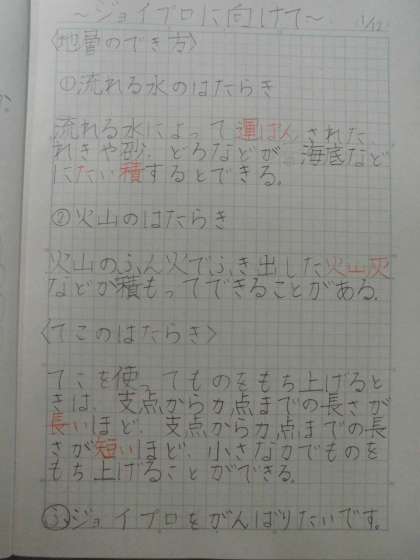 ～ジョイプロに向けて～ 11/12
〈地層のでき方〉
①流れる水のはたらき
流れる水によって運ぱんされた
れきや砂、どろなどが、海底など
にたい積するとできる。
②火山のはたらき
火山のふん火でふき出した火山灰
などが積もってできることがある。
〈てこのはたらき〉
てこを使ってものをもち上げると
きは、支点から力点までの長さが
長いほど、支点から力点までの長
さが短いほど、小さな力でものを
もち上げることができる。
③ジョイプロをがんばりたいです。